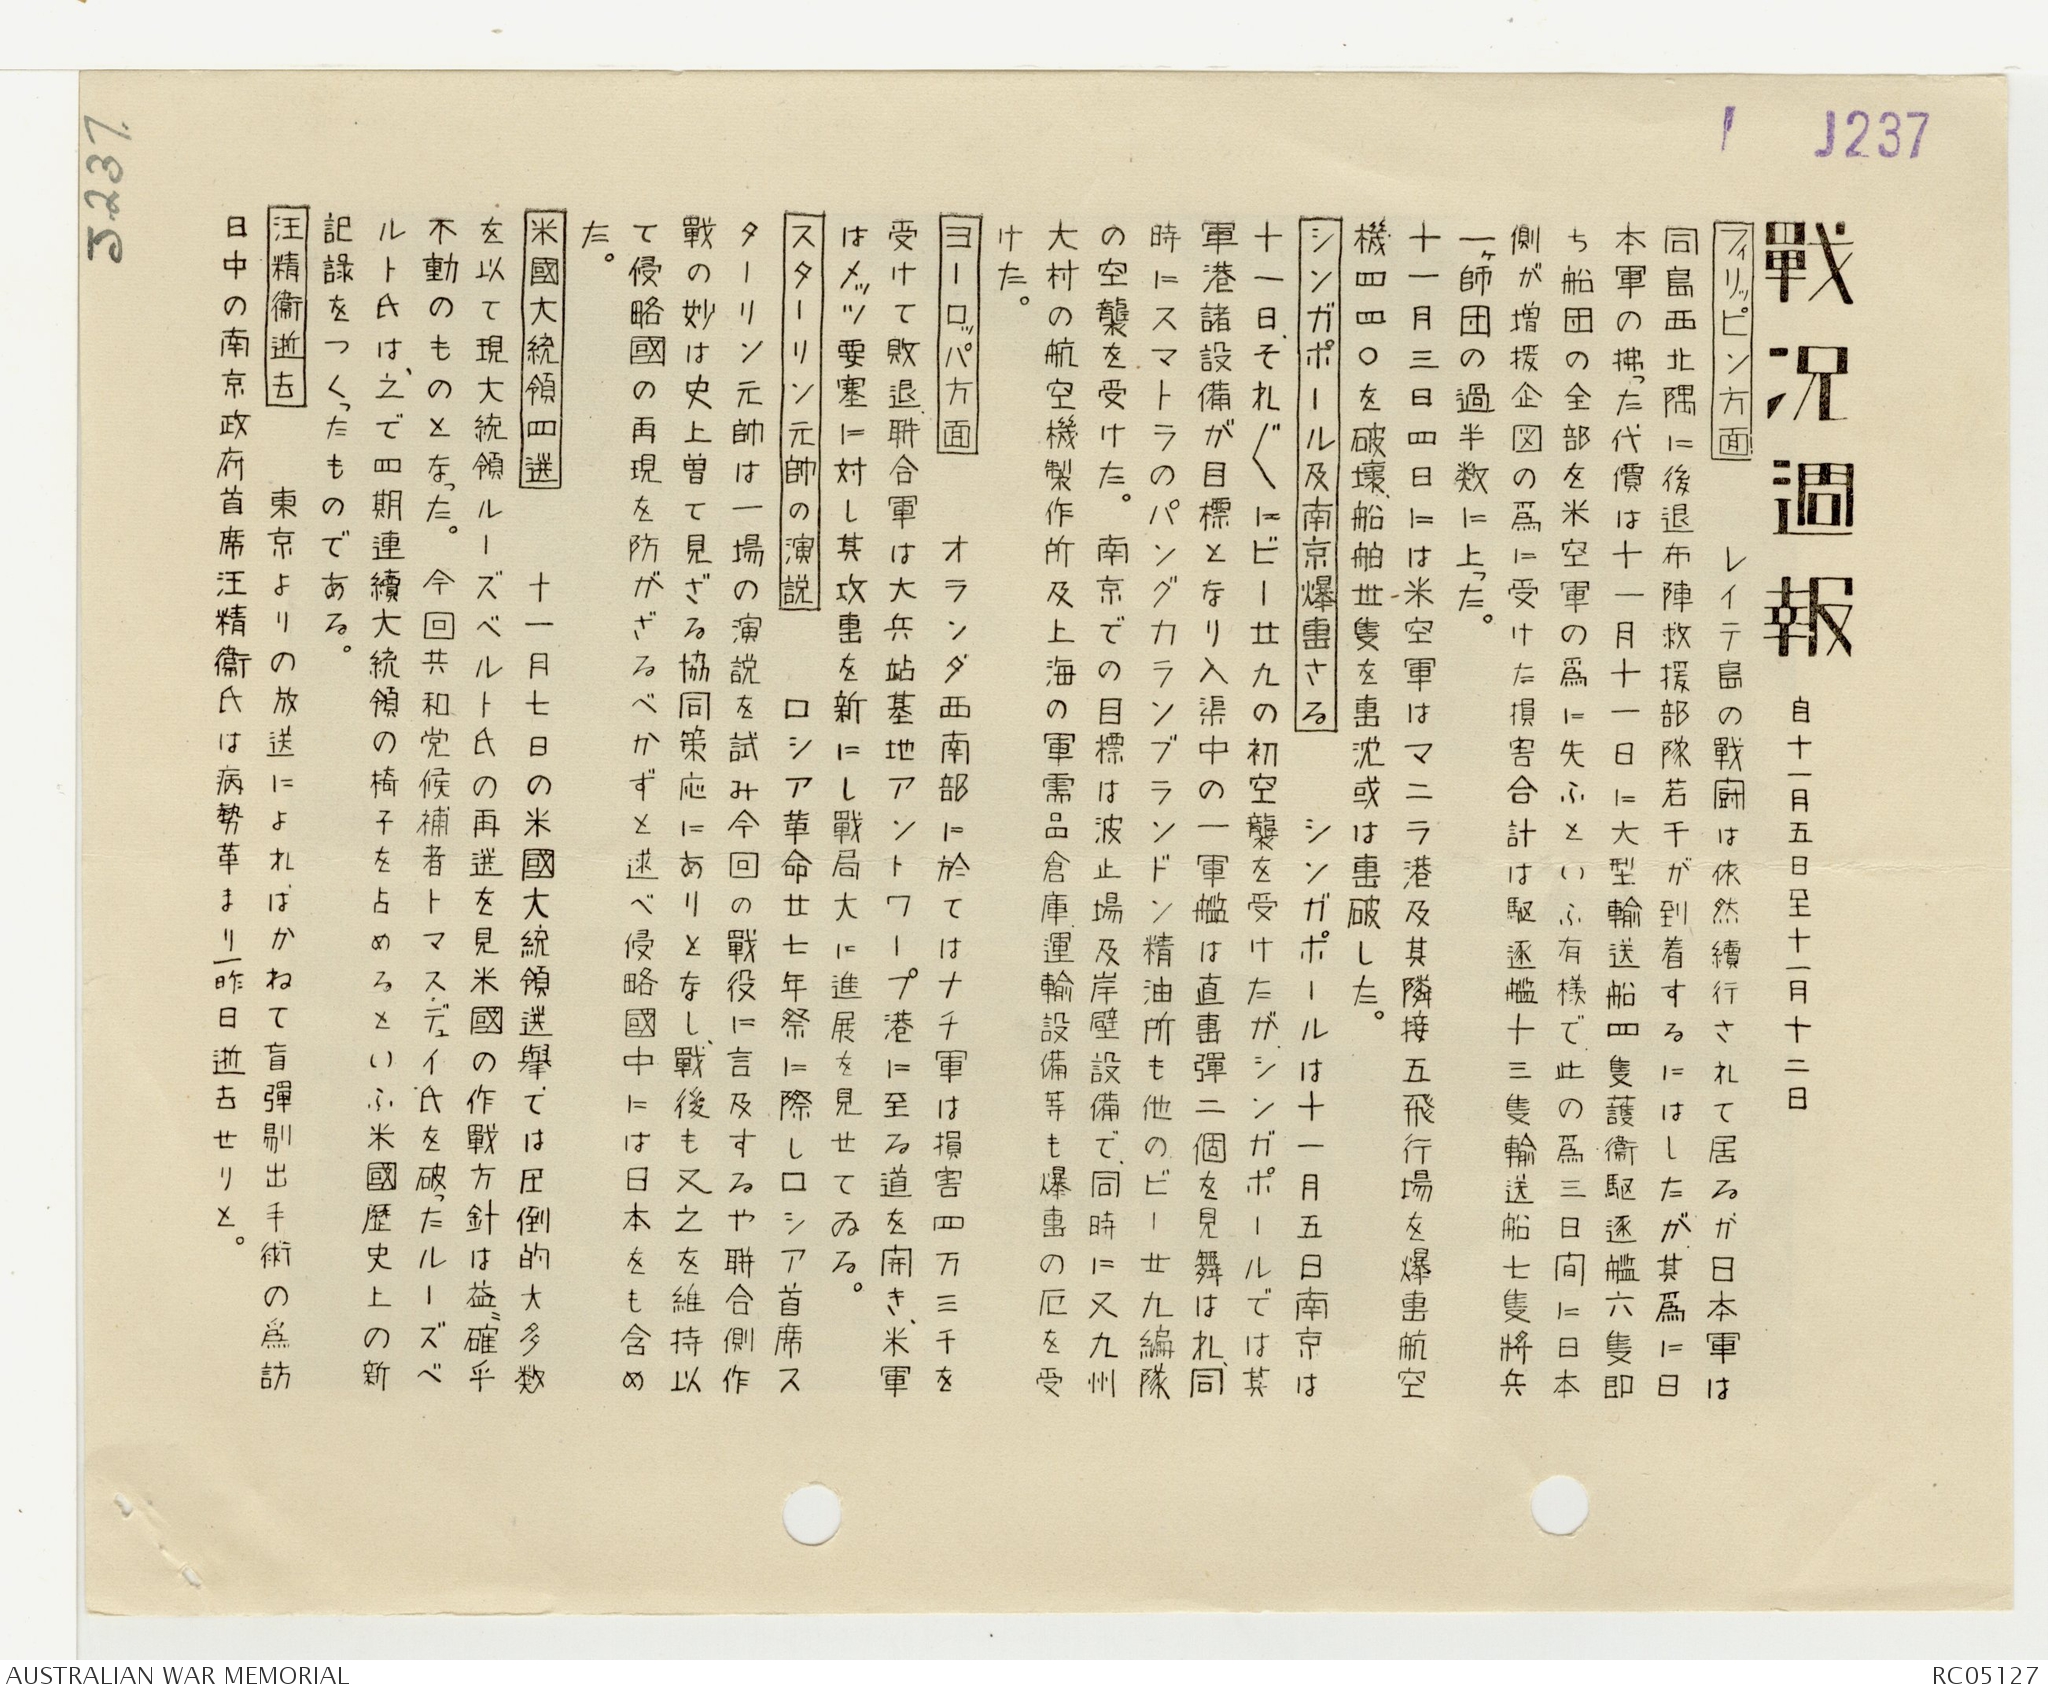 J237
J.237.
戰況週報
自十一月五日至十一月十二日
フィリッピン方面　レイテ島の戰鬪は依然續行されて居るが日本軍は
同島西北隅に後退布陣救援部隊若干が到着するにはしたが其爲に日
本軍の拂った代價は十一月十一日に大型輸送船四隻護衞駆逐艦六隻即
ち船団の全部を米空軍の爲に失ふといふ有様で此の爲三日間に日本
側が増援企図の爲に受けた損害合計は駆逐艦十三隻輸送船七隻將兵
一ヶ師団の過半数に上った。
十一月三日四日には米空軍はマニラ港及其隣接五飛行場を爆撃航空
機四四〇を破壞、船舶卅隻を撃沈或は撃破した。
シンガポール及南京爆撃さる　シンガポールは十一月五日南京は
十一日、それ〴〵にビー廿九の初空襲を受けたが、シンガポールでは其
軍港諸設備が目標となり入渠中の一軍艦は直撃彈二個を見舞はれ、同
時にスマトラのパングカランブランドン精油所も他のビー廿九編隊
の空襲を受けた。南京での目標は波止場及岸壁設備で、同時に又九州
大村の航空機製作所及上海の軍需品倉庫、運輸設備等も爆撃の厄を受
けた。
ヨーロッパ方面　オランダ西南部に於てはナチ軍は損害四万三千を
受けて敗退、聯合軍は大兵站基地アントワープ港に至る道を開き、米軍
はメッツ要塞に対し其攻撃を新にし戰局大に進展を見せてゐる。
スターリン元帥の演説　ロシア革命廿七年祭に際しロシア首席ス
ターリン元帥は一場の演説を試み今回の戰役に言及するや聯合側作
戰の妙は史上曽て見ざる協同策応にありとなし、戰後も又之を維持以
て侵略國の再現を防がざるべかずと述べ侵略國中には日本をも含め
た。
米國大統領四選　十一月七日の米國大統領選擧では圧倒的大多数
を以て現大統領ルーズベルト氏の再選を見米國の作戰方針は益〻確乎
不動のものとなった。今回共和党候補者トマス・デュイ氏を破ったルーズベ
ルト氏は、之で四期連續大統領の椅子を占めるといふ米國歴史上の新
記錄をつくったものである。
汪精衞逝去　東京よりの放送によればかねて盲彈剔出手術の爲訪
日中の南京政府首席汪精衞氏は病勢革まり一昨日逝去せりと。
AUSTRALIAN WAR MEMORIAL
RC05127